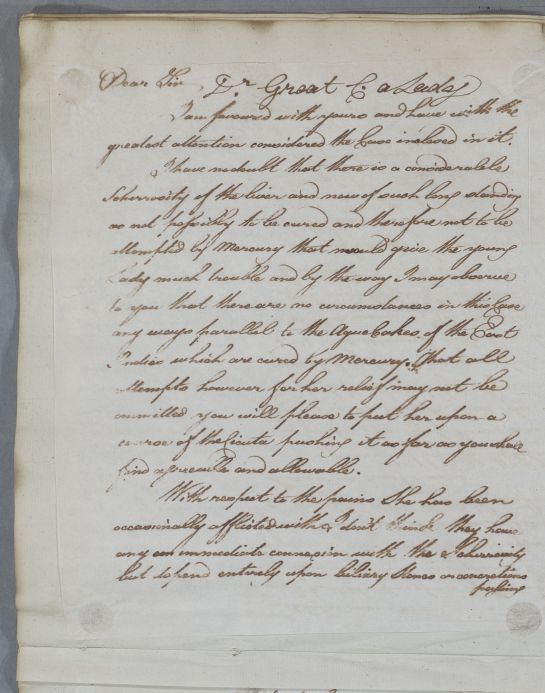 Dear Sir, Dr. Great C: a Lady
I am favour'd with yours and have with the
greatest attention considered the Case inclosed in it.
I have no doubt that there is a considerable
Schirrosity of the liver and now of such long standing
as not possibly to be cured and therefore not to be
attempted by Mercury that would give the young
Lady much trouble and by the way I may observe
to you that there are no circumstances in this Case
any ways parallel to the Ague Cakes of the East
Indies which are cured by Mercury. That all
attempts however for her relief may not be
ommitted you will please to put her upon a
course of the Cicuta pushing it as far as you shall
find agreeable and allowable.
With respect to the pains She has been
occasionally afflicted with I don't think they have
any immediate connexion with the Schirrosity
but depend entirely upon biliary Stones or concretions
passing